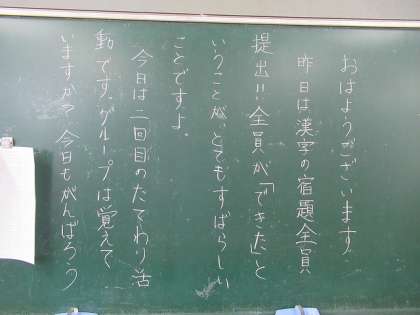 おはようございます。
昨日は漢字の宿題全員
提出!!全員が「できた」と
いうことが、とてもすばらしい
ことですよ。
今日は二回目のたてわり活
動です。グループは覚えて
いますか?今日もがんばろう